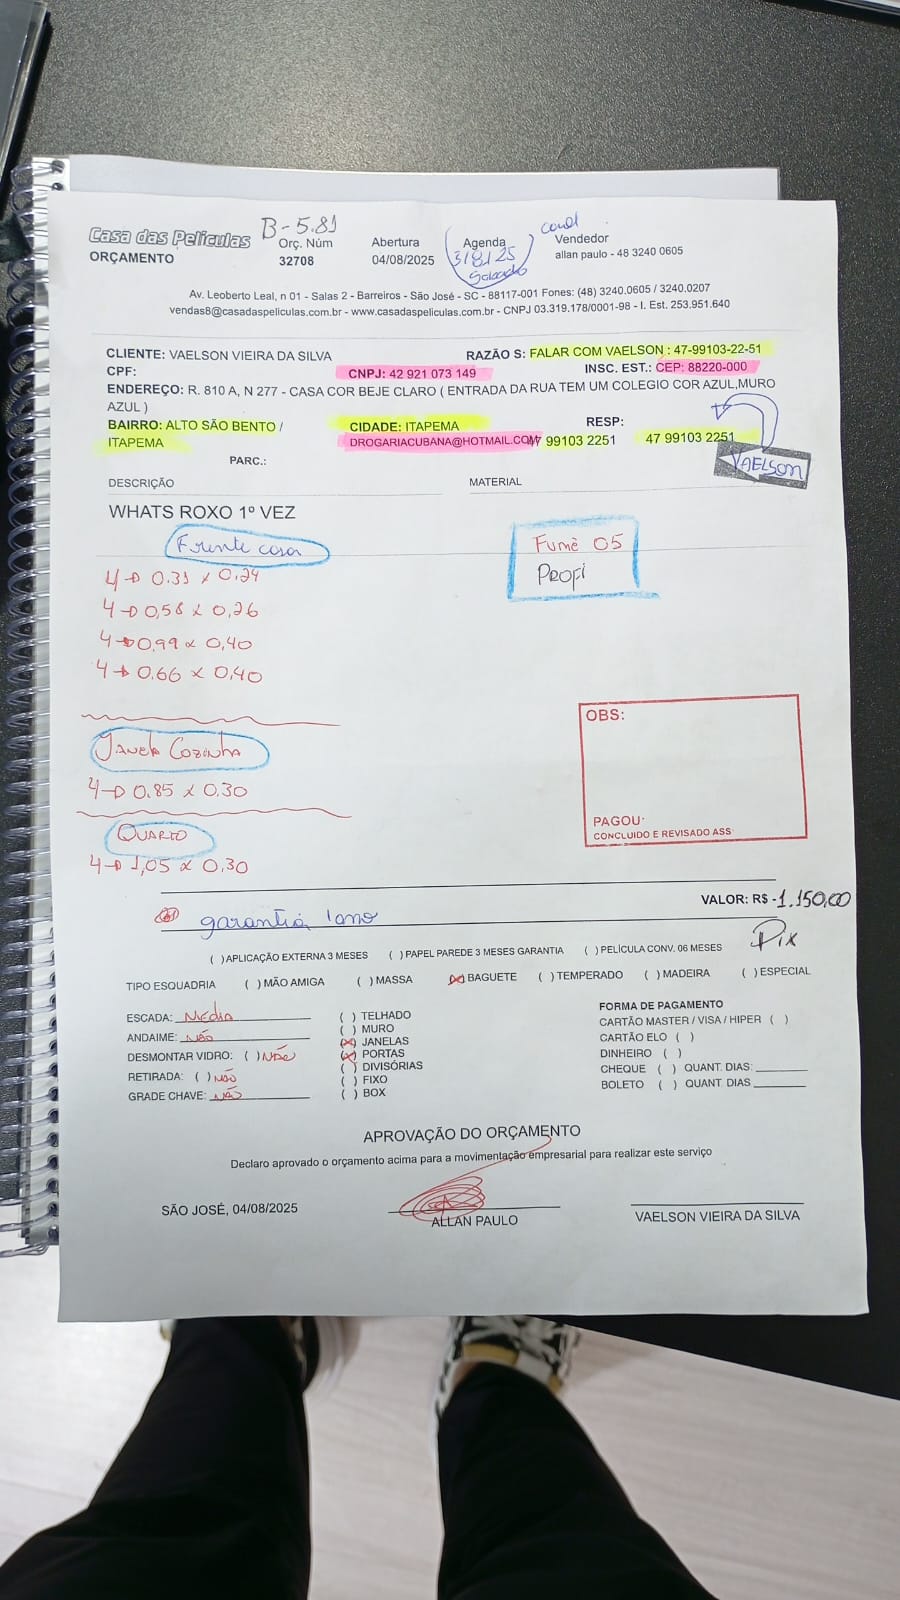 B-5.81
Casa das Películas
ORÇAMENTO
Orç. Núm
32708
Abertura
04/08/2025
Agenda
Sabado
Vendedor
allan paulo - 48 3240 0605
Av. Leoberto Leal, n 01 - Salas 2 - Barreiros - São José - SC - 88117-001 Fones: (48) 3240.0605 / 3240.0207
vendas8@casadaspeliculas.com.br - www.casadaspeliculas.com.br - CNPJ 03.319.178/0001-98 - I. Est. 253.951.640
CLIENTE: VAELSON VIEIRA DA SILVA RAZÃO S: FALAR COM VAELSON : 47-99103-22-51
CPF: CNPJ: 42 921 073 149 INSC. EST.: CEP: 88220-000
ENDEREÇO: R. 810 A, N 277 - CASA COR BEJE CLARO ( ENTRADA DA RUA TEM UM COLEGIO COR AZUL,MURO
AZUL )
BAIRRO: ALTO SÃO BENTO / CIDADE: ITAPEMA RESP:
ITAPEMA DROGARIACUBANA@HOTMAIL.COM 99103 2251 47 99103 2251
PARC.: VAELSON
DESCRIÇÃO MATERIAL
WHATS ROXO 1º VEZ
Frente casa
Fumê 05
PROFI
4→ 0.31 x 0,24
4→ 0,58 x 0,26
4→ 0,99 x 0,40
4→ 0.66 x 0,40
OBS:
JANELA COZINHA
4→ 0.85 x 0.30
PAGOU:
CONCLUIDO E REVISADO ASS
QUARTO
4→ 1,05 x 0,30
VALOR: R$ -1.150,00
garantia 1 ano
Pix
( )APLICAÇÃO EXTERNA 3 MESES ( )PAPEL PAREDE 3 MESES GARANTIA ( )PELÍCULA CONV. 06 MESES
TIPO ESQUADRIA ( )MÃO AMIGA ( )MASSA (X)BAGUETE ( )TEMPERADO ( )MADEIRA ( )ESPECIAL
ESCADA: Média
ANDAIME: NÃO
DESMONTAR VIDRO: ( ) NÃO
RETIRADA: ( ) NÃO
GRADE CHAVE: NÃO
( ) TELHADO
( ) MURO
(X) JANELAS
(X) PORTAS
( ) DIVISÓRIAS
( ) FIXO
( ) BOX
FORMA DE PAGAMENTO
CARTÃO MASTER / VISA / HIPER ( )
CARTÃO ELO ( )
DINHEIRO ( )
CHEQUE ( ) QUANT. DIAS:
BOLETO ( ) QUANT. DIAS
APROVAÇÃO DO ORÇAMENTO
Declaro aprovado o orçamento acima para a movimentação empresarial para realizar este serviço
SÃO JOSÉ, 04/08/2025
ALLAN PAULO
VAELSON VIEIRA DA SILVA